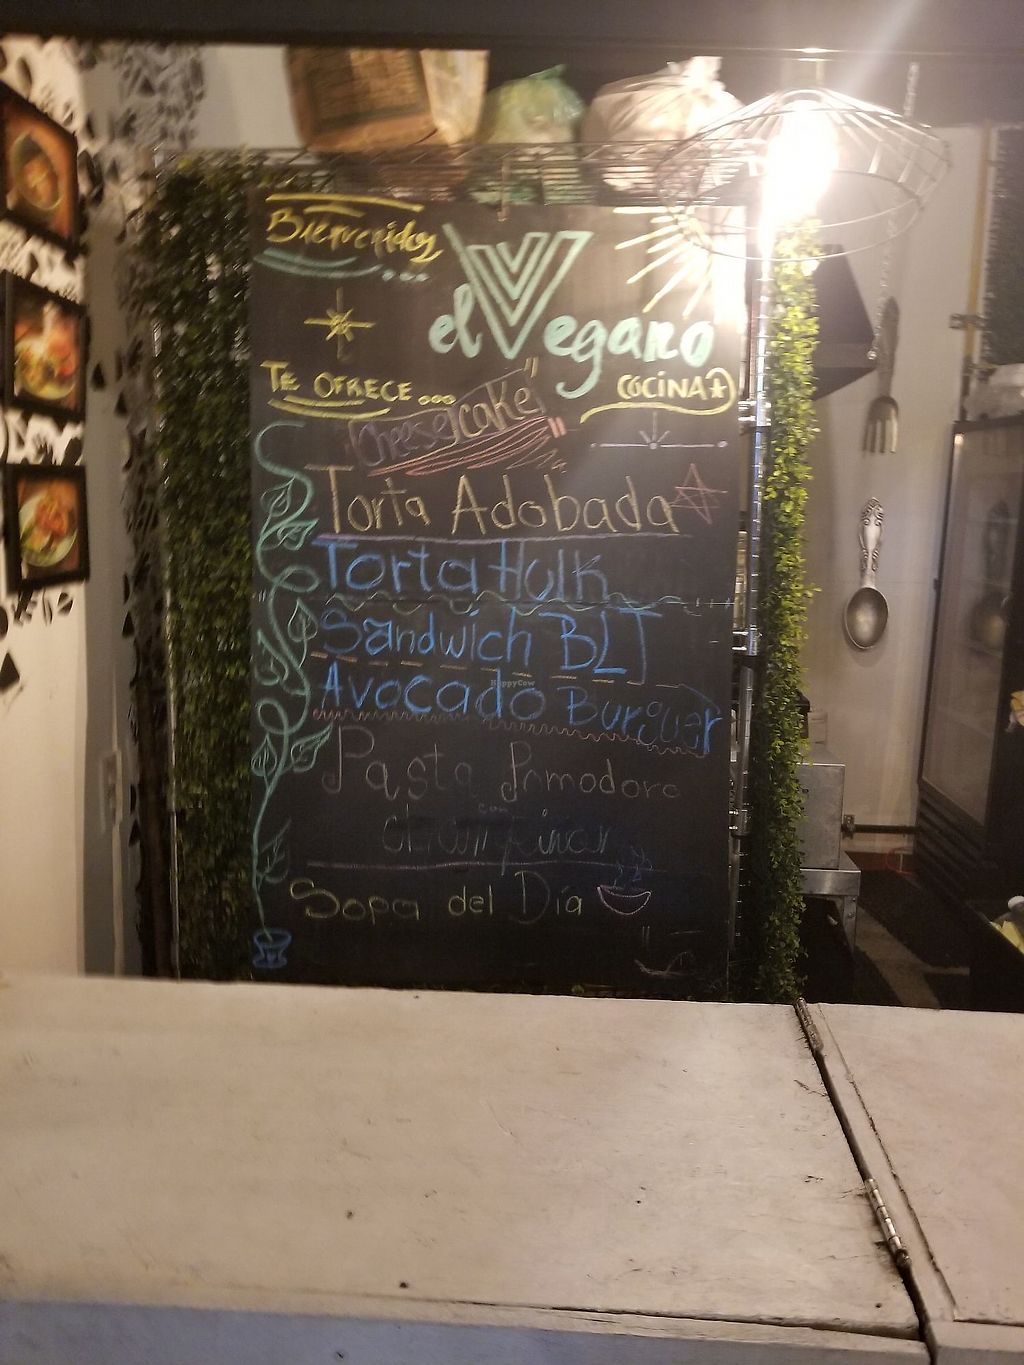 Bienvenidos
...
el Vegano
TE OFRECE...
COCINA
Cheesecake"
Torta Adobada
Torta Hulk
Sandwich BLT
HappyCow
Avocado Burguer
Pasta Pomodoro
con
champiñon
Sopa del Día